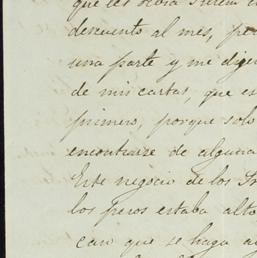 que les
descuento al mes, pe
una parte y me dige
de mis cartas, que es
primero, porque solo
encontrarze de alguna
Este negocio de los Sr
los pesos estaba alto
can que se haga a